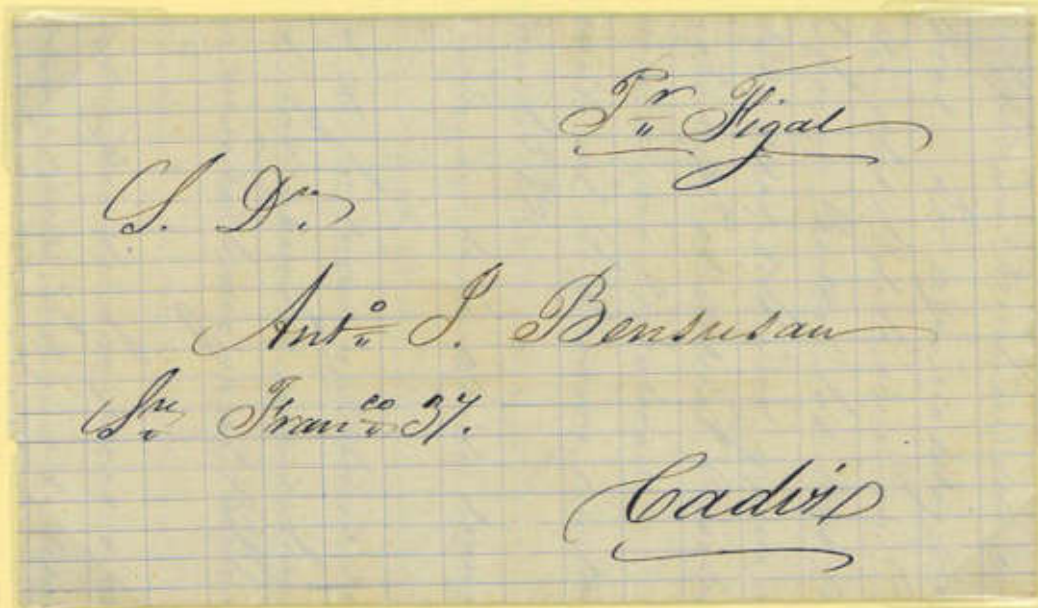 Pr Figal
S. Dn.
Anto J. Bensusan
Sn Franco 37.
Cadix